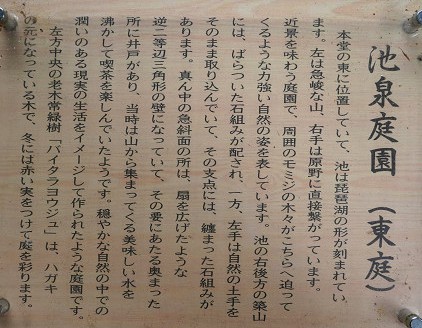 池泉庭園（東庭）
本堂の東に位置していて、池は琵琶湖の形が刻まれてい
ます。左は急峻な山、右手は原野に直接繋がっています。
近景を味わう庭園で、周囲のモミジの木々がこちらへ迫って
くるような力強い自然の姿を表しています。池の右後方の築山
には、ばらついた石組みが配され、一方、左手は自然の土手を
そのまま取り込んでいて、その支点には、纏まった石組みが
あります。真ん中の急斜面の所は、扇を広げたような
逆二等辺三角形の壁になっていて、その要にあたる奥まった
所に井戸があり、当時は山から集まってくる美味しい水を
沸かして喫茶を楽しんでいたようです。穏やかな自然の中での
潤いのある現実の生活をイメージして作られたような庭園です。
左方中央の老木常緑樹「バイタラヨウジュ」は、ハガキ
の元になっている木で、冬には赤い実をつけて庭を彩ります。